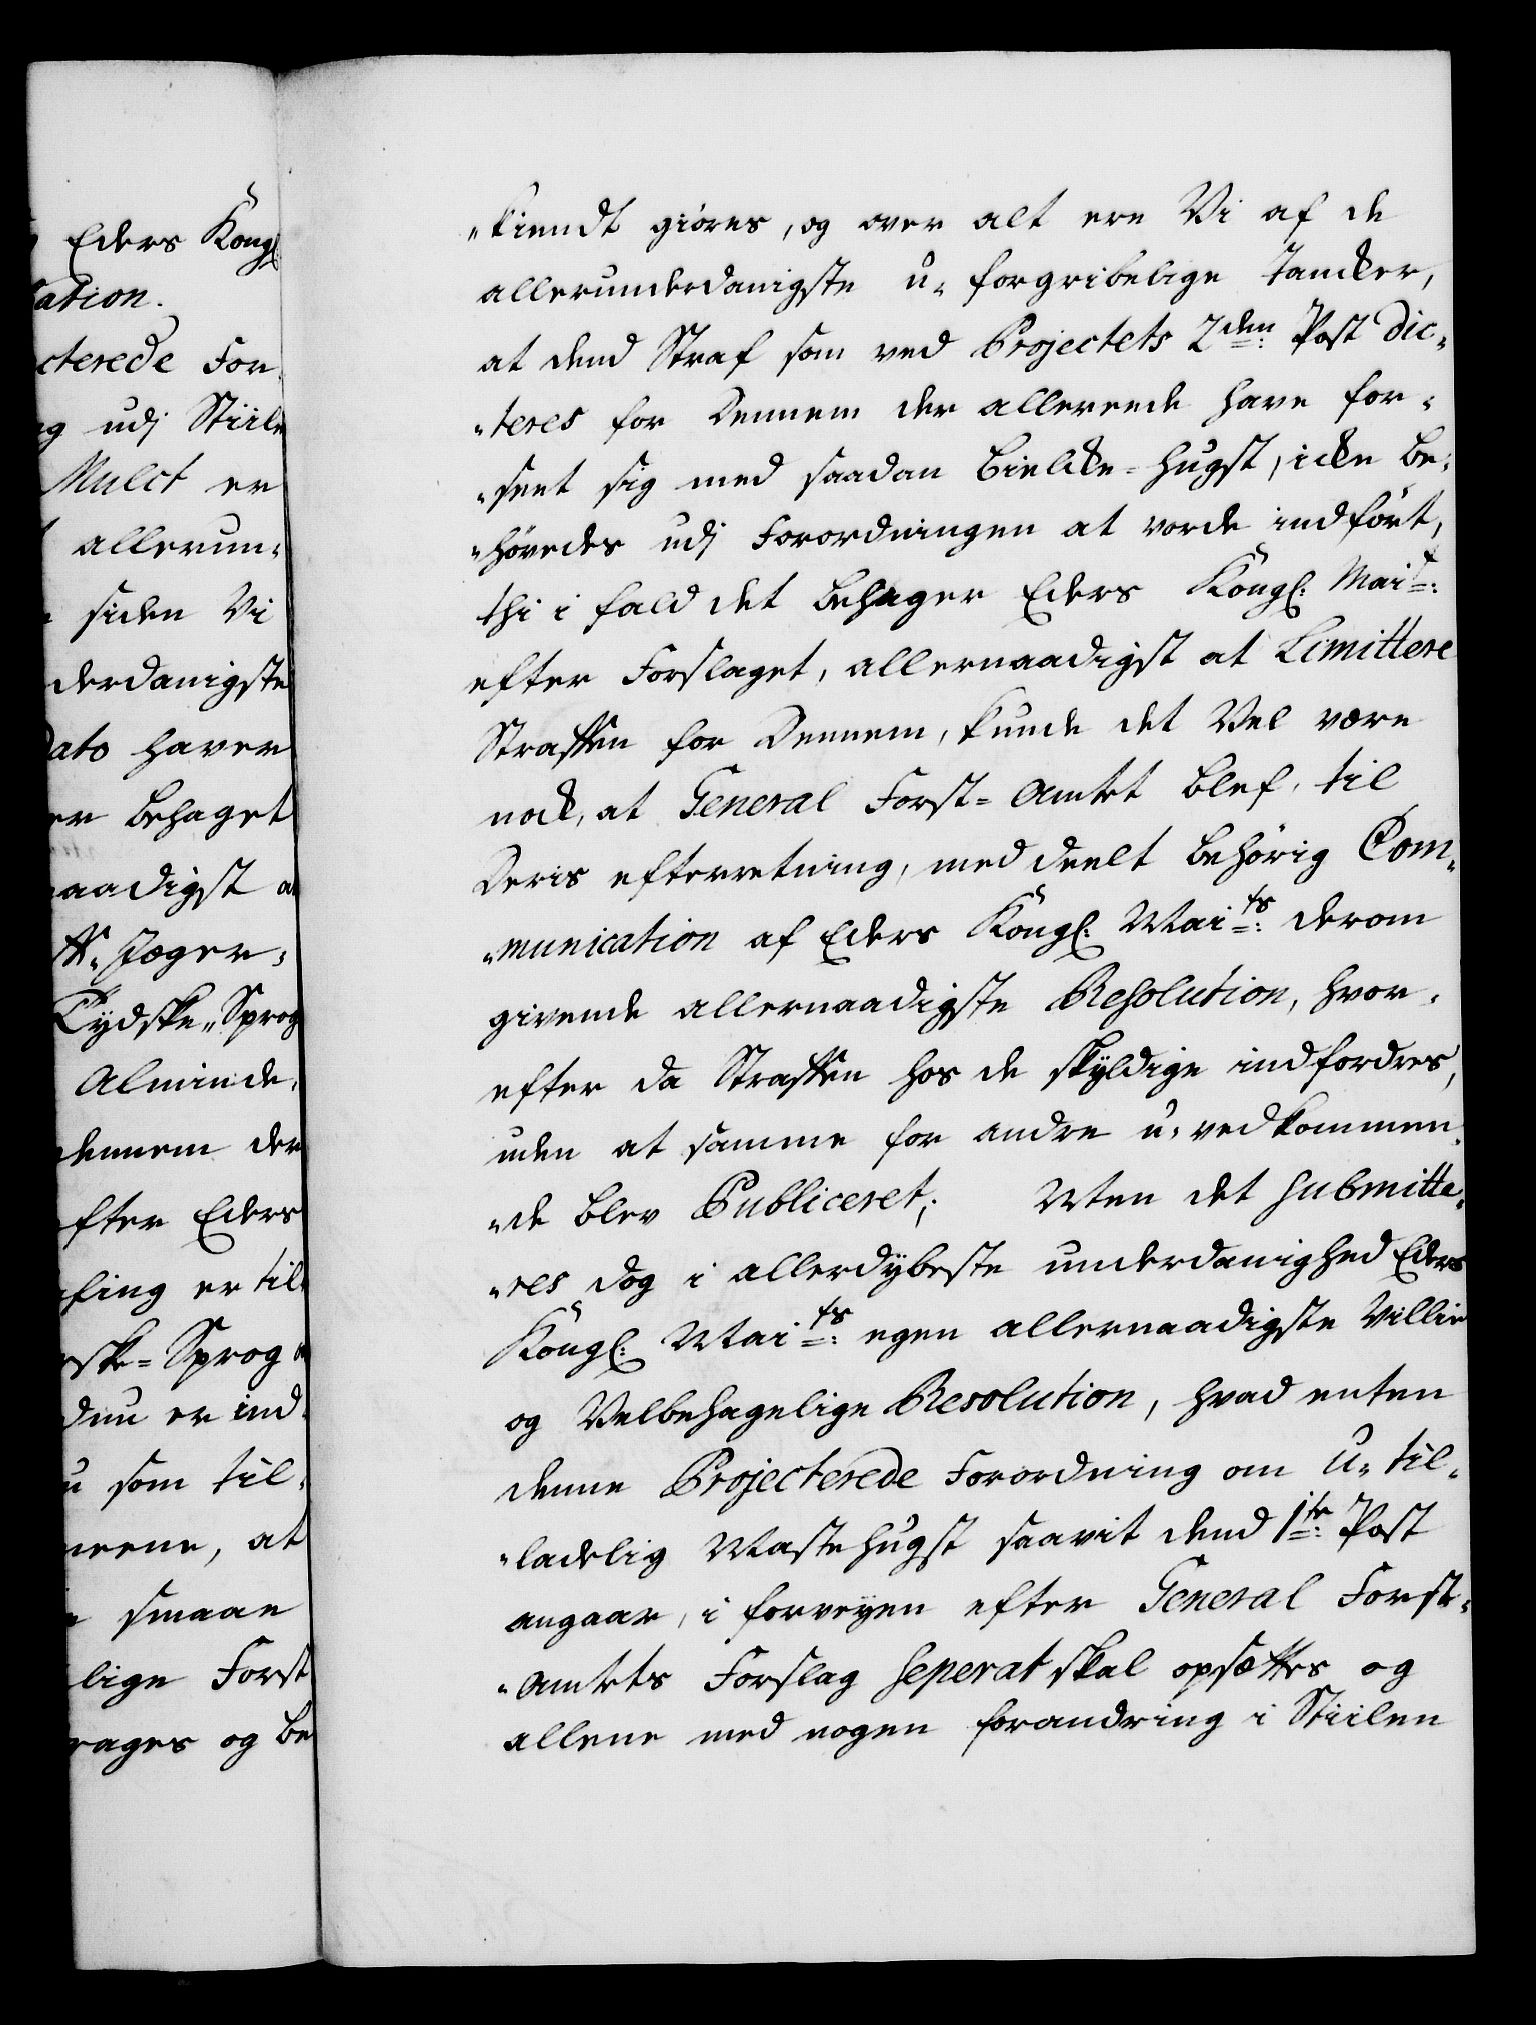 Eders Kongl:
ation.
cterede For
g udj Stiile
Mulct er
allerun-
siden Vi
derdanigste
Dato haver
er behaget
aadigst a
ff- Jæger-
Tydske-Sprog
Alminde-
dennem der
efter Eders
fing er til
ske-Sprog
dnu er ind
som til-
neene, at
smaae
lige Forst
rages og be
"kiendt giöres, og over alt ere Vi af de
allerunderdanigste u-forgribelige Tancker,
at dend Straf som ved Projectets 2den: Post dic-
"teres for Dennem der allereede have for-
"seet sig med saadan Bielcke-hugst, icke be-
"höfvedes udj Forordningen at vorde indfört,
thi i fald det behager Eders Kongl: Mait:
efter Forslaget, allernaadigst at Limittere
Straffen for Dennem, kunde det Vel være
nock, at General Forst-Amtet blef, til
Deris efterretning, meddeelt behörig Com-
"munication af Eders Kongl: Maits: derom
givende allernaadigste Resolution, hvor-
efter da Straffen hos de skyldige indfordres,
uden at samme for andre u-vedkommen-
"de blev Publiceret; Men det submitte-
"res dog i allerdybeste underdanighed Eders
Kongl: Maits: egen allernaadigste Villie
og Velbehagelige Resolution, hvad enten
denne Projecterede Forordning om U-til-
"ladelig Mastehugst saavit dend 1ste: Post
angaar, i forveyen efter General Forst-
"Amtets Forslag seperat skal opsættes og
allene med nogen forandring i Stiilen